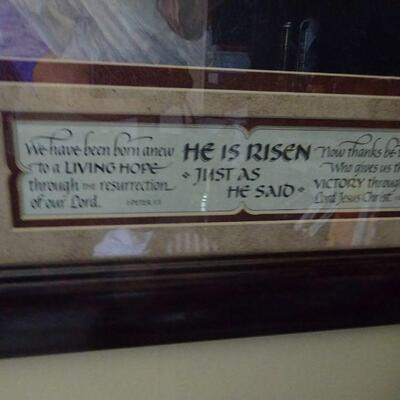 We have been born anew
to a LIVING HOPE
through THE resurrection
of our Lord. I PETER 1:3
HE IS RISEN
JUST AS
HE SAID
Now thanks be
Who gives us
VICTORY throug
Lord Jesus Christ.